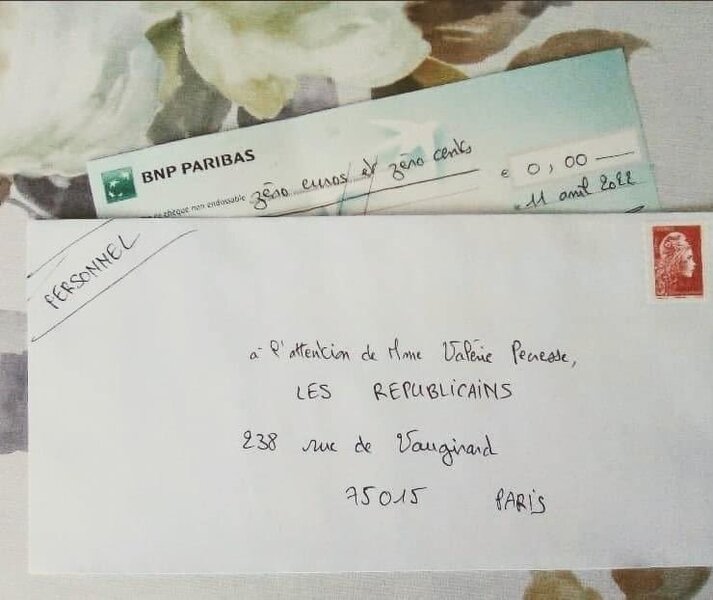 BNP PARIBAS
chèque non endossable zéro euros et zéro cents
€ 0,00
11 avril 2022
PERSONNEL
à l'attention de Mme Valérie Pecresse,
LES REPUBLICAINS
238 rue de Vaugirard
75015 PARIS